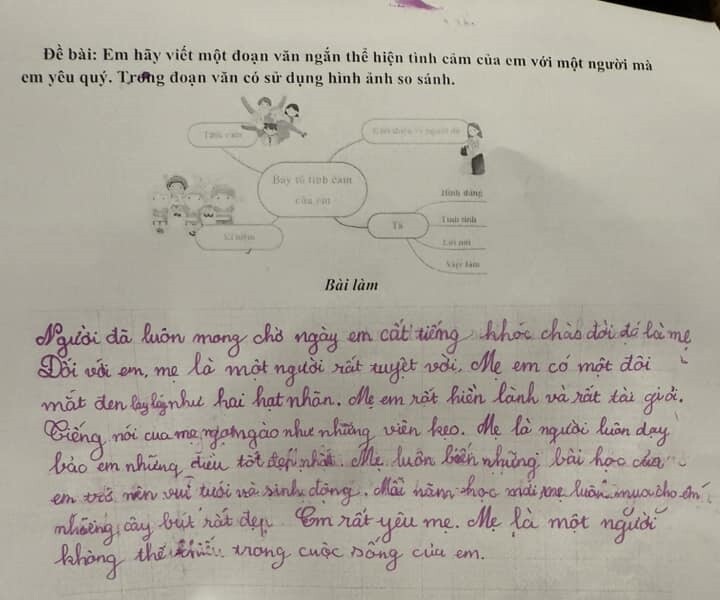 Đề bài: Em hãy viết một đoạn văn ngắn thể hiện tình cảm của em với một người mà
em yêu quý. Trong đoạn văn có sử dụng hình ảnh so sánh.
Tình cảm
Giới thiệu về người đó
Bày tỏ tình cảm
của em
Hình dáng
Tả
Tính tình
Kỉ niệm
Lời nói
Việc làm
Bài làm
Người đã luôn mong chờ ngày em cất tiếng khóc chào đời đó là mẹ
Đối với em, mẹ là một người rất tuyệt vời. Mẹ em có một đôi
mắt đen lay láy như hai hạt nhãn. Mẹ em rất hiền lành và rất tài giỏi.
Tiếng nói của mẹ ngọt ngào như những viên kẹo. Mẹ là người luôn dạy
bảo em những điều tốt đẹp nhất. Mẹ luôn biến những bài học của
em trở nên vui tươi và sinh động. Mỗi năm học mới mẹ luôn mua cho em
những cây bút rất đẹp. Em rất yêu mẹ. Mẹ là một người
không thể thiếu trong cuộc sống của em.